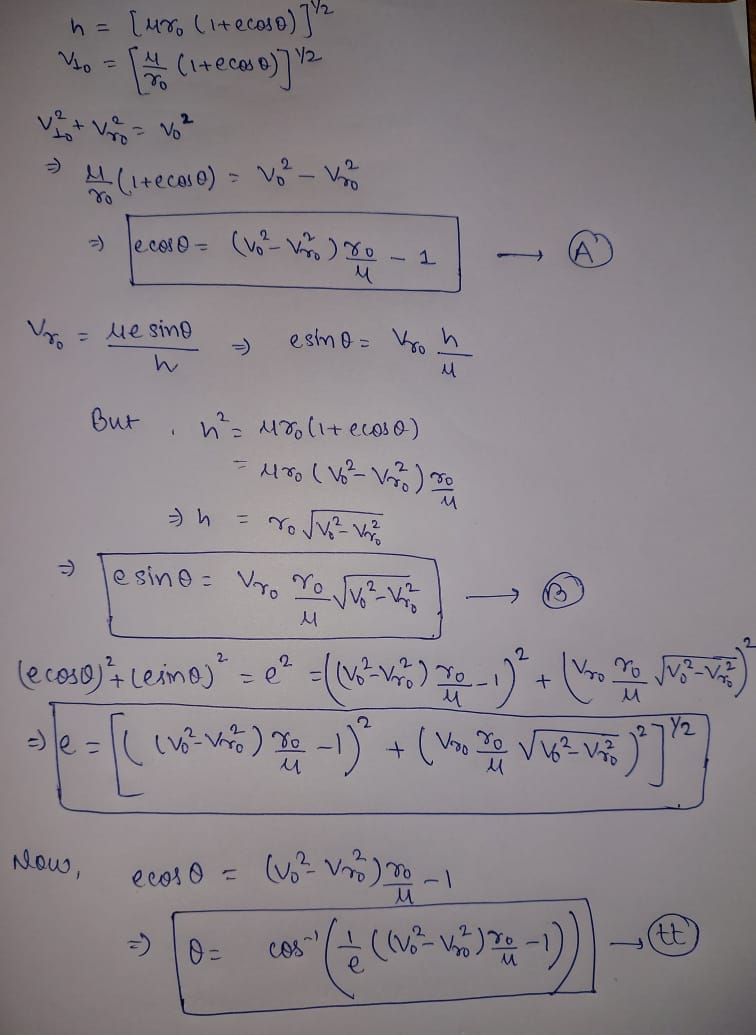 h = [μr₀ (1+ecosθ)]^1/2
V⊥₀ = [μ/r₀ (1+ecosθ)]^1/2
V⊥₀² + Vr₀² = V₀²
⇒ μ/r₀ (1+ecosθ) = V₀² - Vr₀²
⇒ ecosθ = (V₀² - Vr₀²) r₀/μ - 1 → (A)
Vr₀ = μe sinθ/h ⇒ esinθ = Vr₀ h/μ
But , h² = μr₀(1+ecosθ)
= μr₀ (V₀² - Vr₀²) r₀/μ
⇒ h = r₀ √(V₀² - Vr₀²)
⇒ e sinθ = Vr₀ r₀/μ √(V₀² - Vr₀²) → (B)
(ecosθ)² + (esinθ)² = e² = ((V₀² - Vr₀²) r₀/μ - 1)² + (Vr₀ r₀/μ √(V₀² - Vr₀²))²
⇒ e = [((V₀² - Vr₀²) r₀/μ - 1)² + (Vr₀ r₀/μ √(V₀² - Vr₀²))²]^1/2
Now, ecosθ = (V₀² - Vr₀²) r₀/μ - 1
⇒ θ = cos⁻¹(1/e ((V₀² - Vr₀²) r₀/μ - 1)) → (tt)